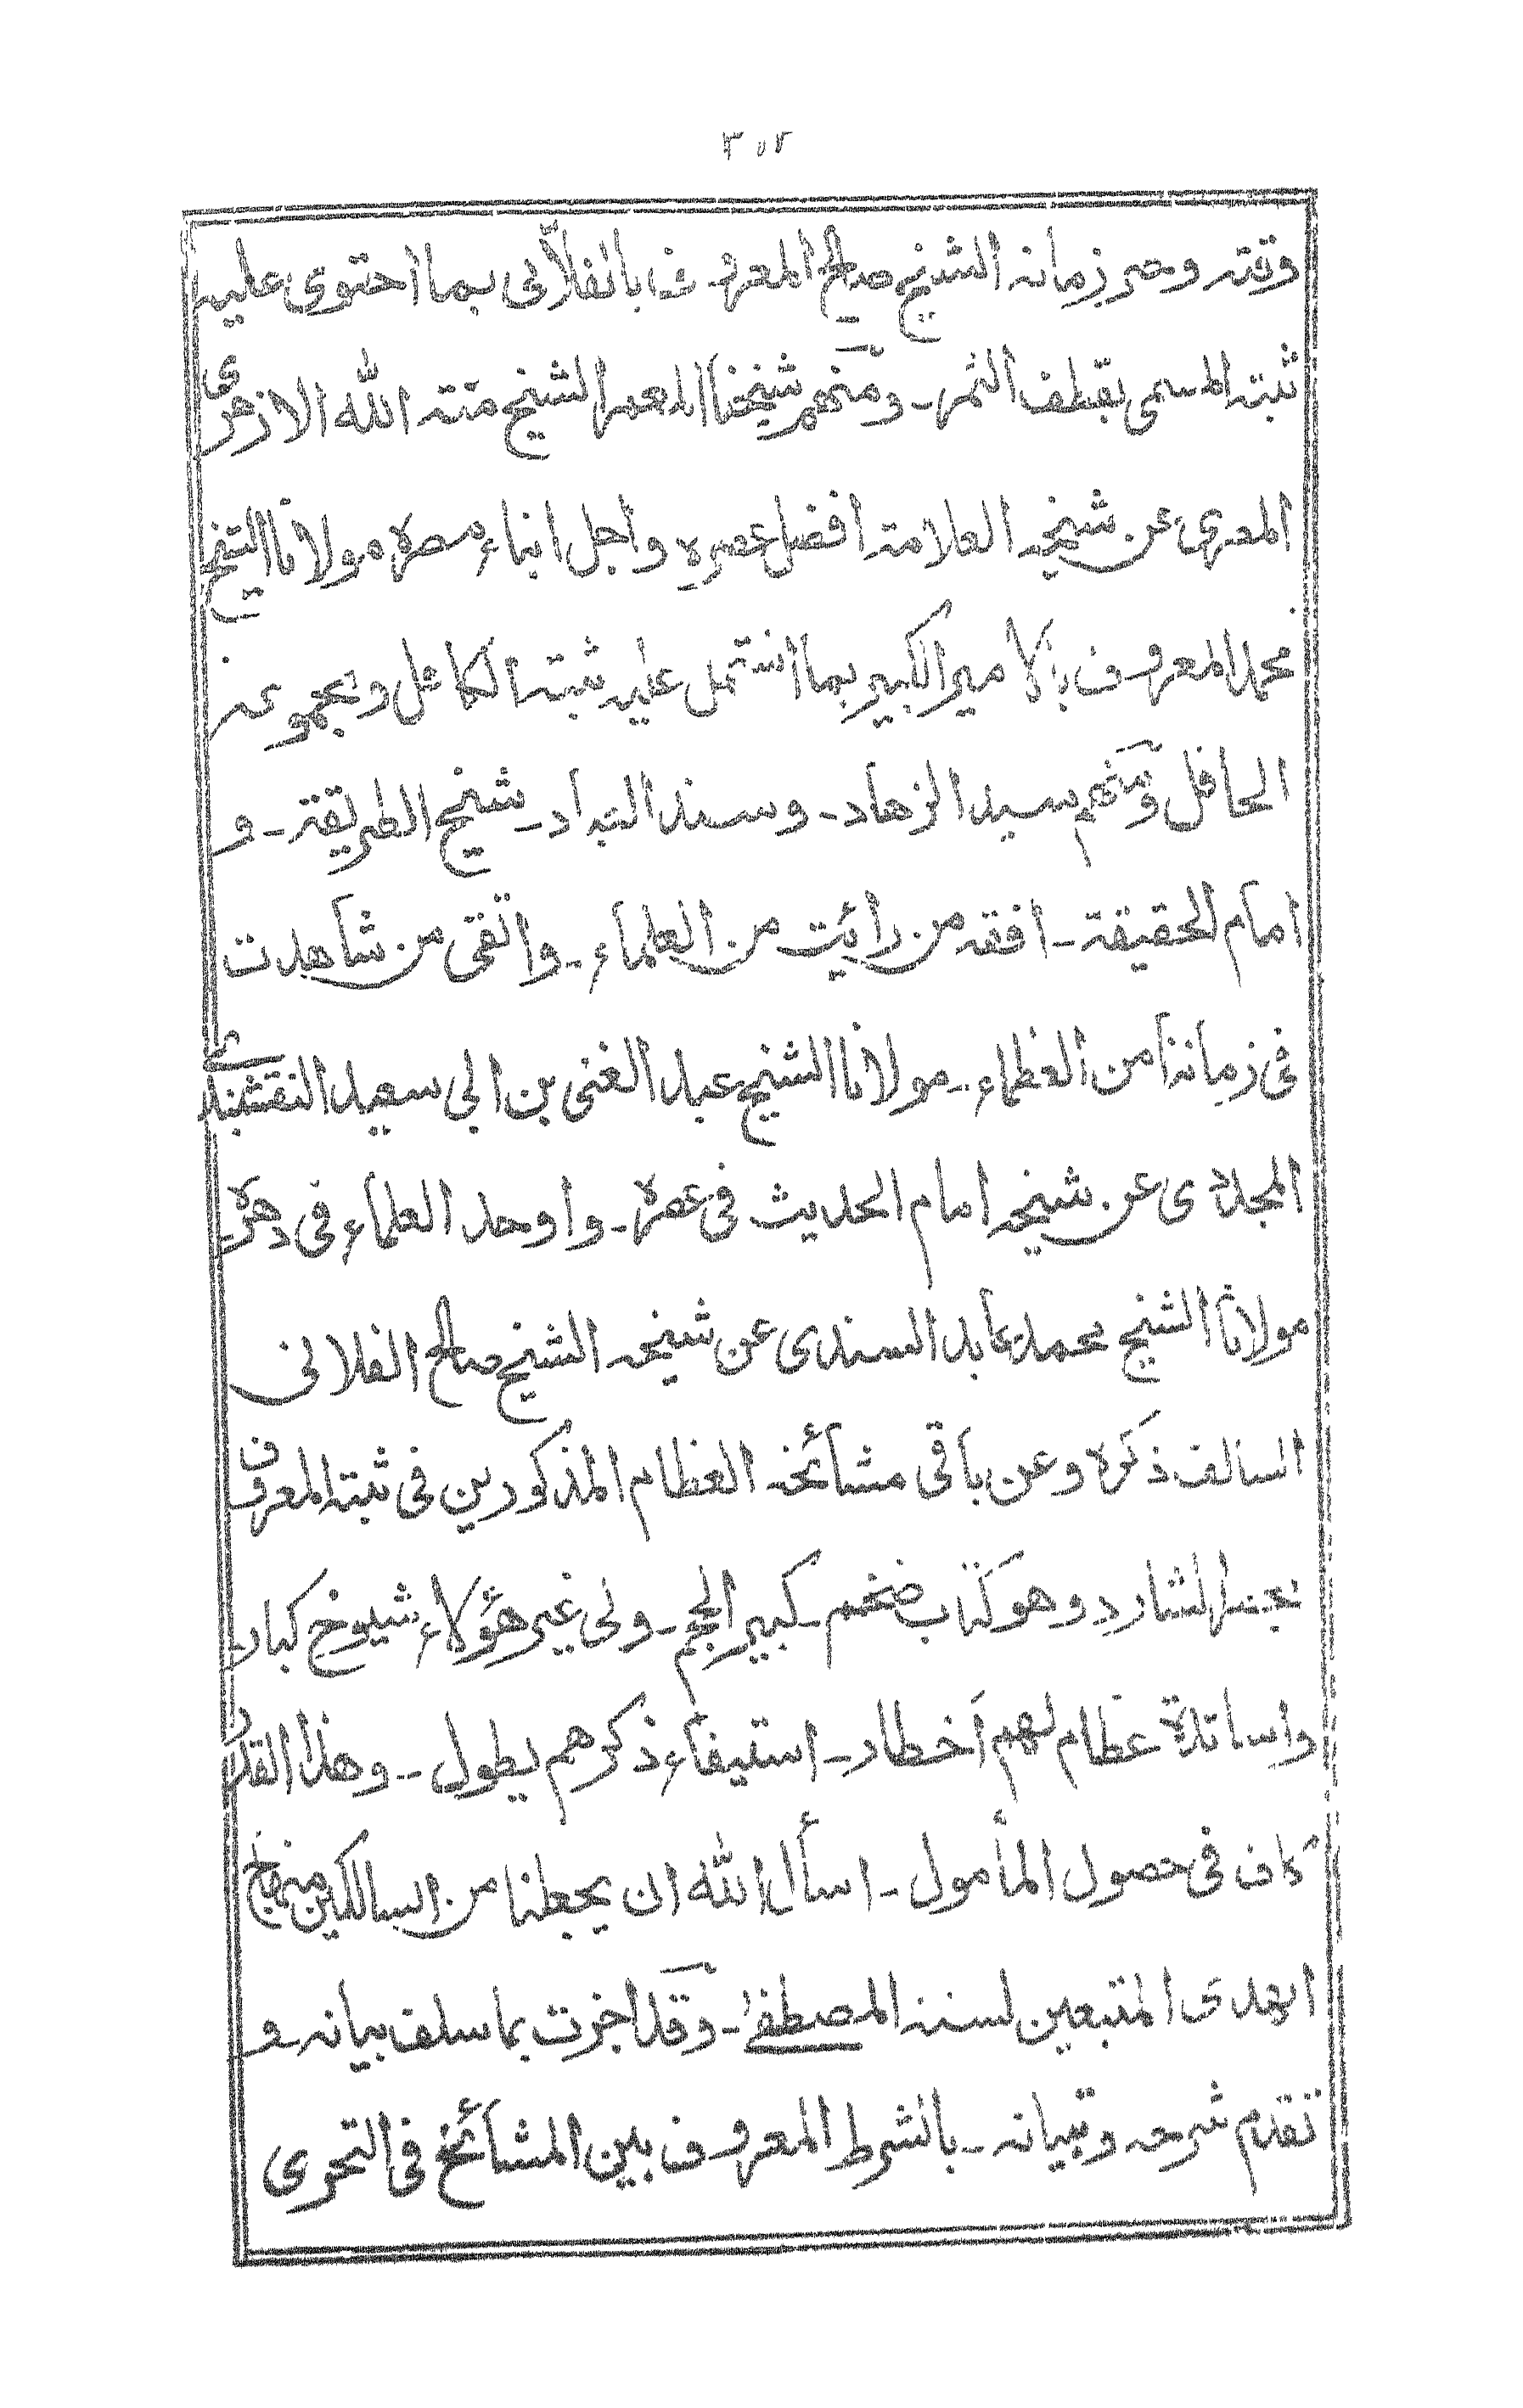 ٣٠٢
وقته وحبر زمانه الشيخ صالح المعروف بالفلّانى بما احتوى عليه
ثبته المسمى بقطف الثمر ـ ومنهم شيخنا المعمر الشيخ منته الله الازهرى
المعرى عن شيخه العلامة افضل عصره واجل ابناء مصره مولانا الشيخ
محمد المعروف بالامير الكبير بما اشتمل عليه ثبته الكامل ومجموعه
الحافل ومنهم سيد الزهاد ـ وسند العباد ـ شيخ الطريقة ـ و
امام الحقيقة ـ افقه من رأيت من العلماء ـ واتقى من شاهدت
فى زماننا من العظماء ـ مولانا الشيخ عبد الغنى بن ابى سعيد النقشبندى
المجددى عن شيخه امام الحديث فى عصره ـ واوحد العلماء فى دهره
مولانا الشيخ محمد عابد السندى عن شيخه الشيخ صالح الفلانى
السالف ذكره وعن باقى مشائخه العظام المذكورين فى ثبته المعروف
بحصر الشارد وهو كتاب ضخم ـ كبير الحجم ـ ولى غير هؤلاء شيوخ كبار ـ
واساتذة عظام لهم اخطار ـ استيفاء ذكرهم يطول ـ وهذا القدر
كاف فى حصول المأمول ـ اسأل الله ان يجعلنا من السالكين منهاج
الهدى المتبعين لسنة المصطفىٰ ـ وقد اجزت بما سلف بيانه و
تقدم شرحه وتبيانه ـ بالشرط المعروف بين المشائخ فى التحرى